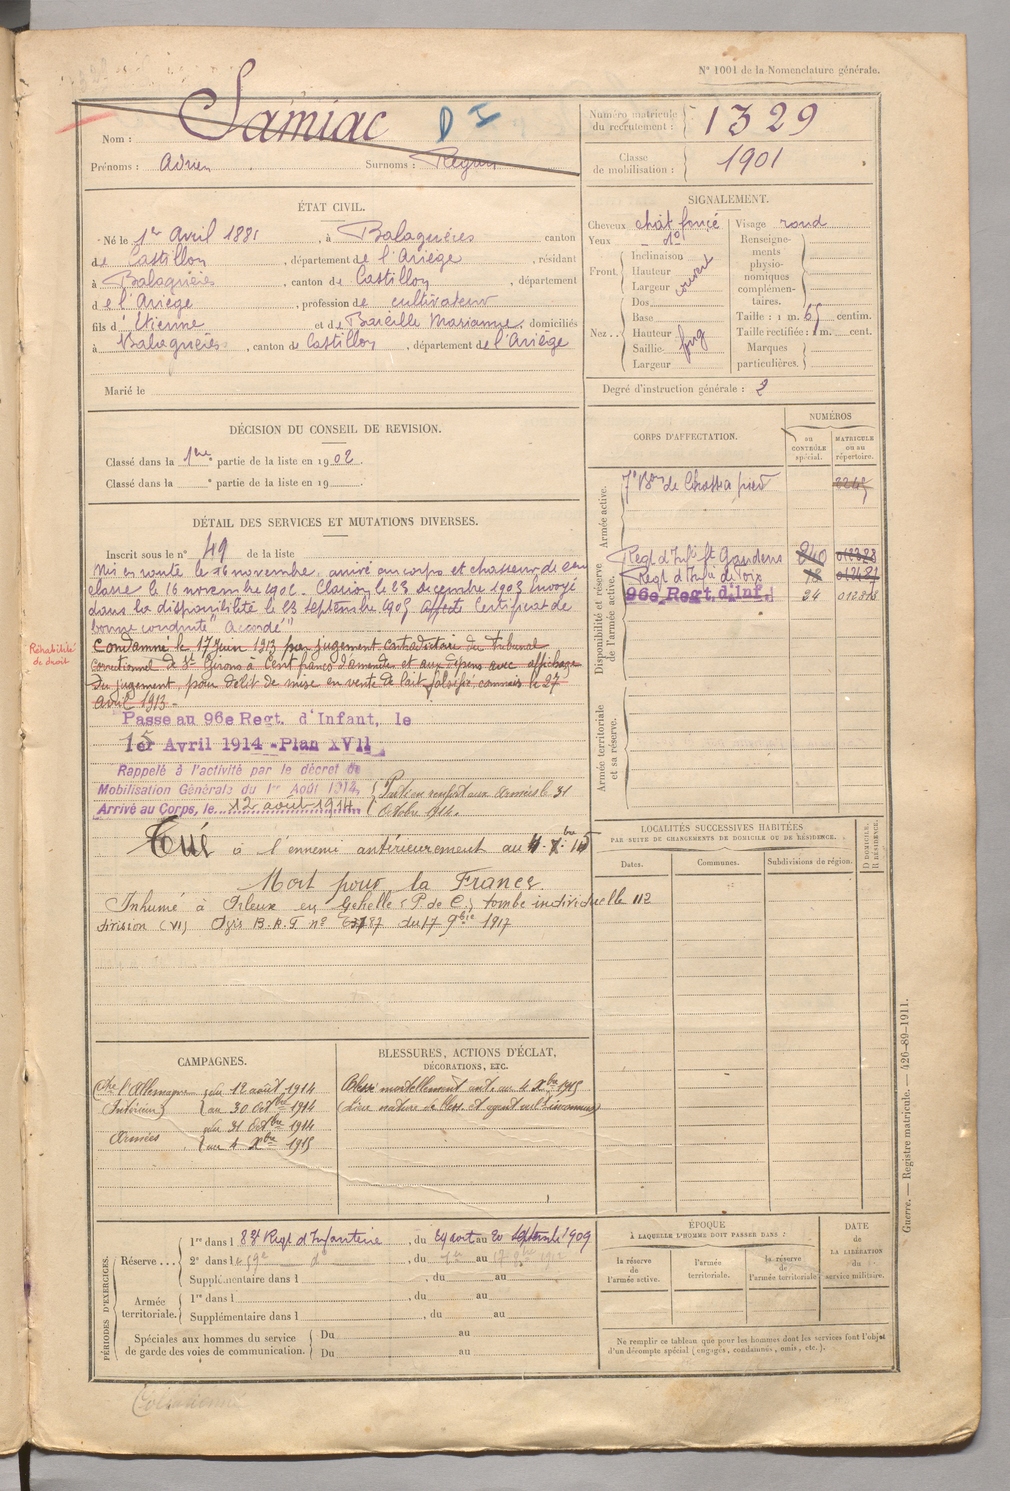 N° 1001 de la Nomenclature générale.
Nom : Samiac D I
Prénoms : Adrien Surnoms :
Numéro matricule du recrutement : 1329
Classe de mobilisation : 1901
ÉTAT CIVIL.
Né le 1er Avril 1881, à Balaguères canton
de Castillon, département de l'Ariège, résidant
à Balaguères, canton de Castillon, département
de l'Ariège, profession de cultivateur
fils d'Etienne et de Bareille Marianne, domiciliés
à Balaguères, canton de Castillon, département de l'Ariège
Marié le
SIGNALEMENT.
Cheveux chât foncé
Yeux do
Front Inclinaison
Hauteur couvert
Largeur
Nez Dos
Base
Hauteur long
Saillie
Largeur
Visage rond
Renseignements physionomiques complémentaires.
Taille : 1 m. 65 centim.
Taille rectifiée : 1 m. cent.
Marques particulières.
Degré d'instruction générale : 2
DÉCISION DU CONSEIL DE REVISION.
Classé dans la 1ère partie de la liste en 1902
Classé dans la e partie de la liste en 19
DÉTAIL DES SERVICES ET MUTATIONS DIVERSES.
Inscrit sous le n° 49 de la liste
Mis en route le 16 novembre, arrivé au corps et chasseur de
classe le 16 novembre 1902. Clairon le 23 decembre 1903 Envoyé
dans la disponibilité le 23 septembre 1905 Affecté Certificat de
bonne conduite "Accordé"
Réhabilité
de droit
Condamné le 17 juin 1913 par jugement contradictoire du tribunal
correctionnel de St Girons à Cent francs d'amende et aux dépens avec affichage
du jugement, pour délit de mise en vente de lait falsifié commis le 27
Avril 1913.-
Passe au 96e Regt. d'Infant, le
15 er Avril 1914 - Plan XVII
Rappelé à l'activité par le décret de
Mobilisation Générale du 1er Août 1914,
Arrivé au Corps, le 12 aout 1914
Parti en renfort aux Armées le 31
Octobre 1914.
Tué à l'ennemi antérieurement au 4 Xbre 15
Mort pour la France
Inhumé à en Gohelle (P. de C.) tombe individuelle 112
division (VI) B.A.T n° du 17 9bre 1917
CORPS D'AFFECTATION.
NUMÉROS
au CONTRÔLE spécial.
MATRICULE ou au répertoire.
Armée active.
7e Bon de Chass. à pied 2245
Disponibilité et réserve de l'armée active.
Regt d'Infie St Gaudens 840 012323
Regt d'Infie de Foix 78
96e Regt. d'Inf. 34
Armée territoriale et sa réserve.
LOCALITÉS SUCCESSIVES HABITÉES
PAR SUITE DE CHANGEMENTS DE DOMICILE OU DE RÉSIDENCE.
Dates.
Communes.
Subdivisions de région.
D DOMICILE, R RÉSIDENCE.
CAMPAGNES.
Ctre l'Allemagne du 12 août 1914
(Intérieur) au 30 Octbre 1914
du 31 Octbre 1914
Armées
au 4 Xbre 1915
BLESSURES, ACTIONS D'ÉCLAT,
DÉCORATIONS, ETC.
Blessé mortellement ant. au 4 Xbre 1915
(Lieu nature de bless. et agent vuln. inconnus)
PÉRIODES D'EXERCICES.
Réserve...
1re dans l 83e Regt d'Infanterie, du 24 aout au 20 septembre 1909
2e dans l 59e do, du 1er au 17
Supplémentaire dans l , du au
Armée territoriale.
1re dans l , du au
Supplémentaire dans l , du au
Spéciales aux hommes du service de garde des voies de communication.
Du au
Du au
ÉPOQUE
À LAQUELLE L'HOMME DOIT PASSER DANS :
la réserve de l'armée active.
l'armée territoriale.
la réserve de l'armée territoriale
DATE de LA LIBÉRATION du service militaire.
Ne remplir ce tableau que pour les hommes dont les services font l'objet
d'un décompte spécial (engagés, condamnés, omis, etc.).
Guerre. — Registre matricule. — 426-89-1911.